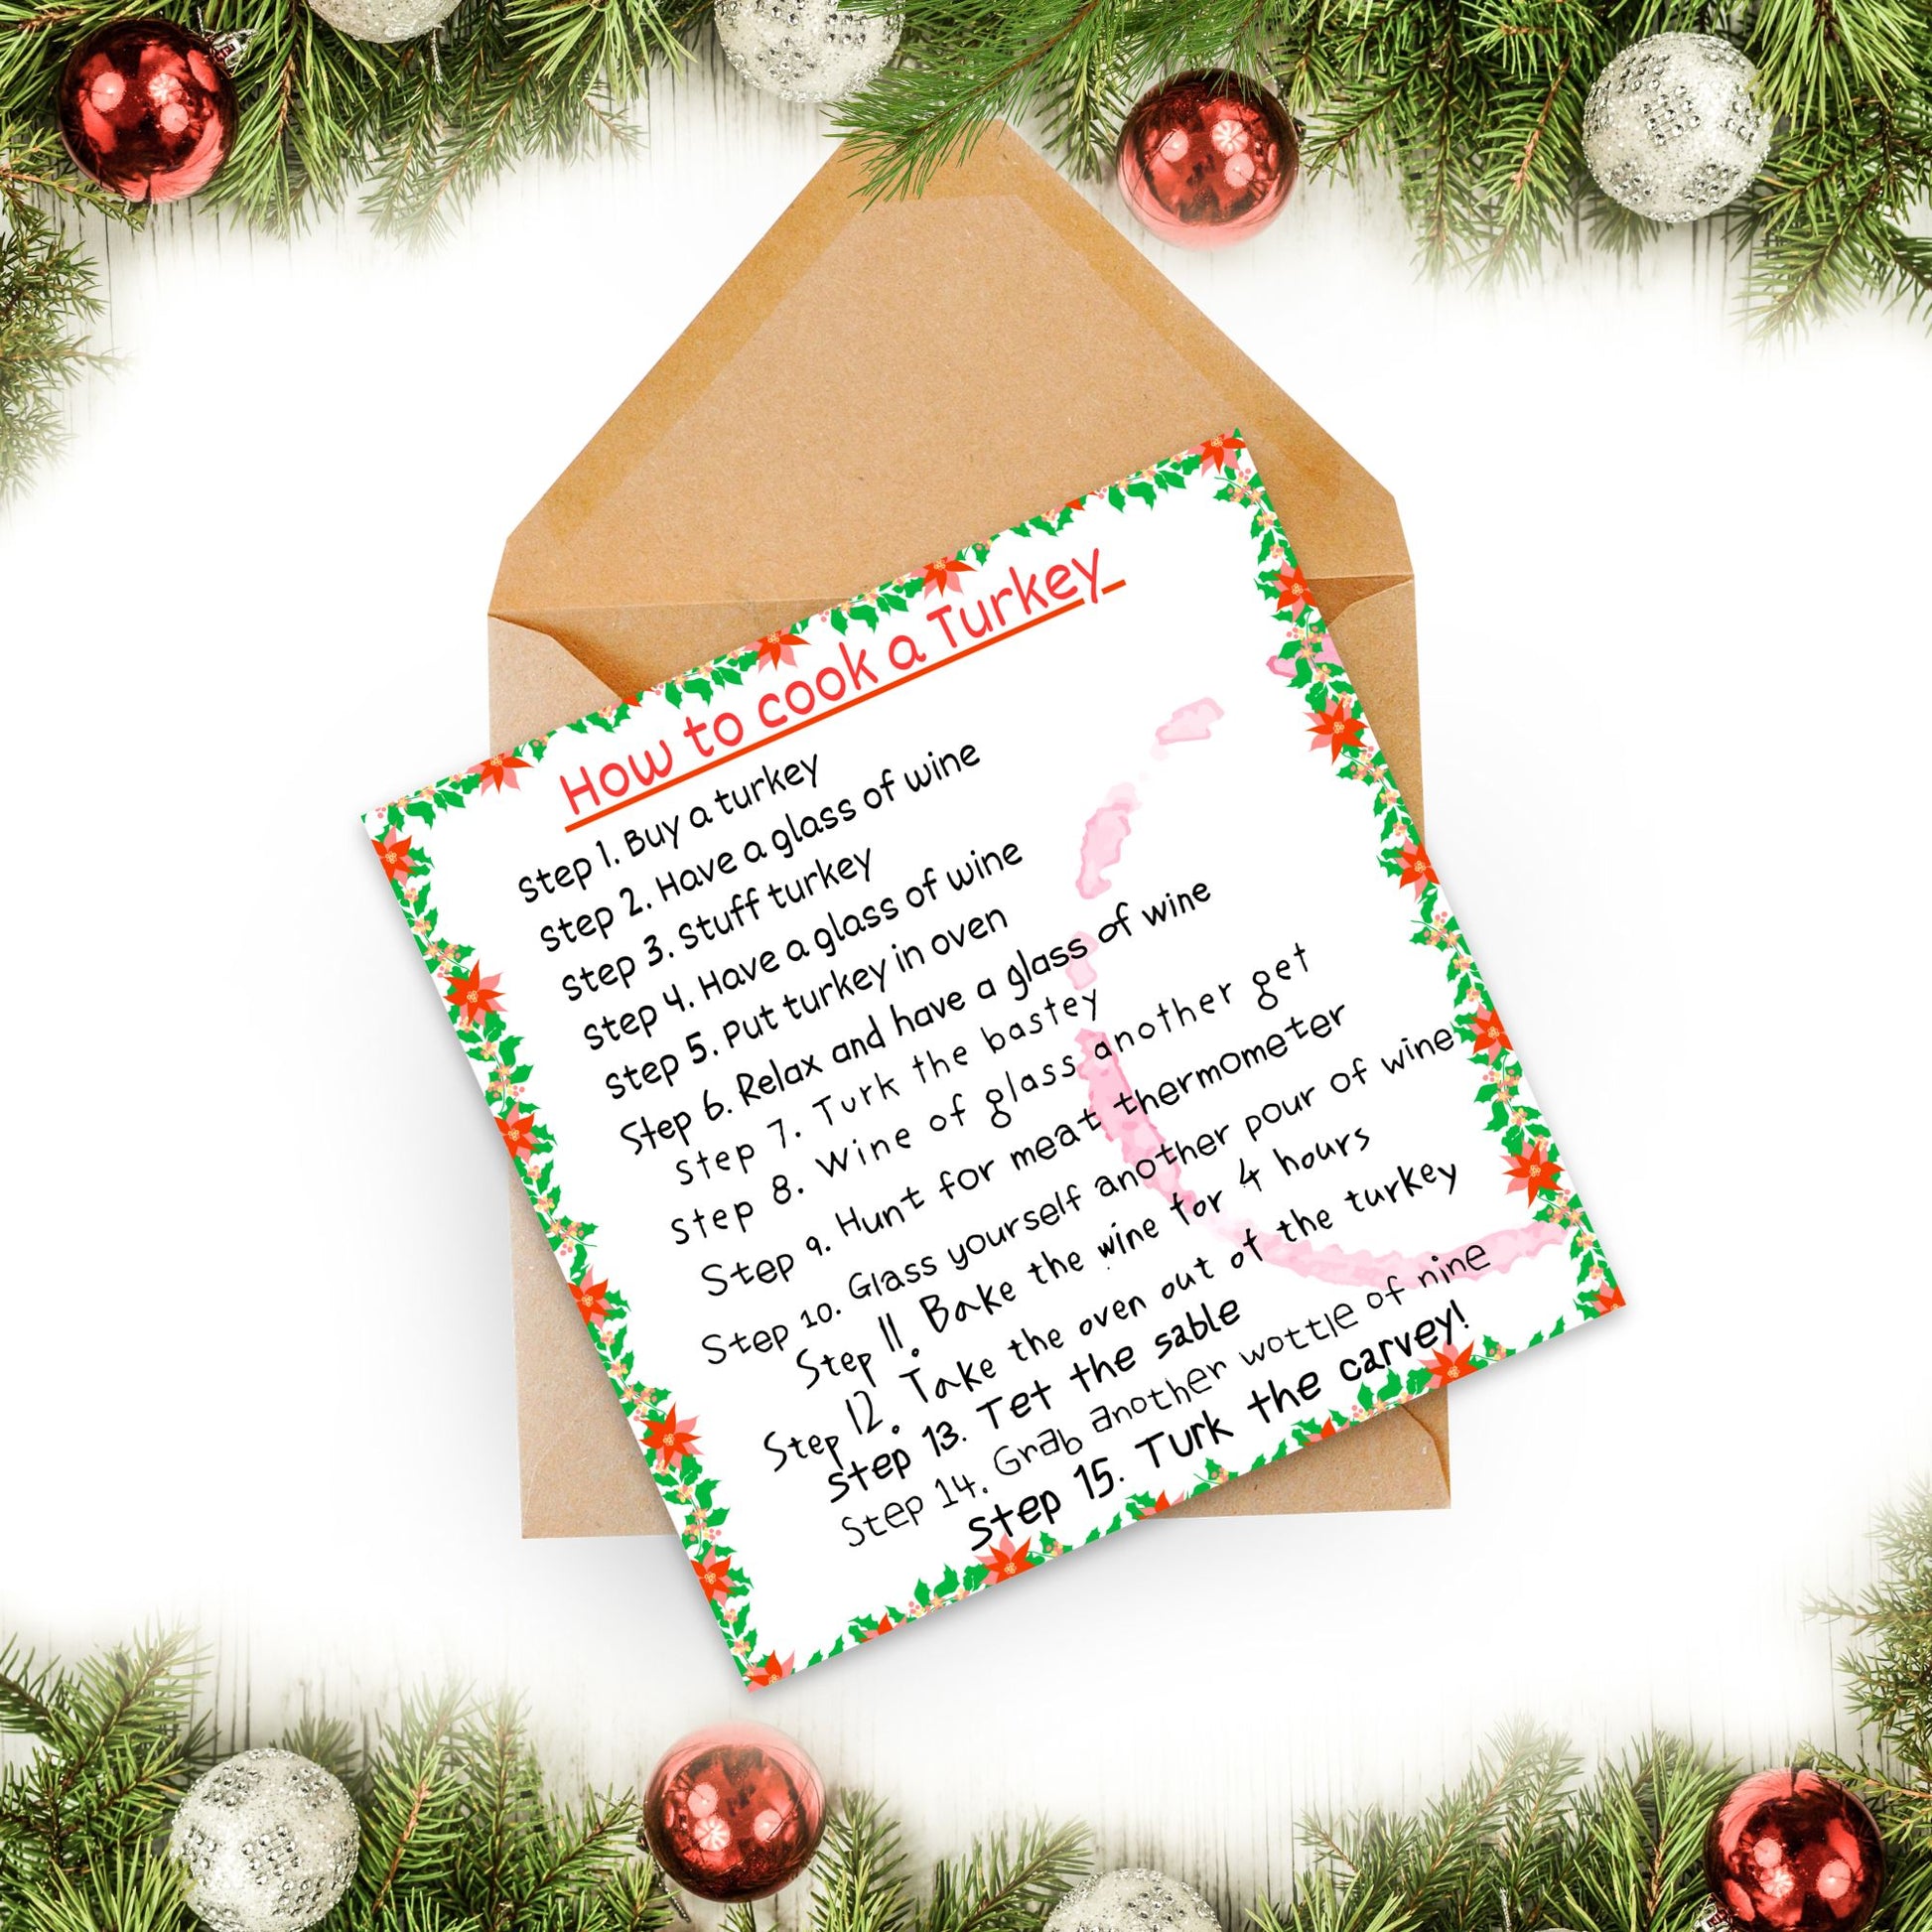 How to cook a Turkey
Step 1. Buy a turkey
Step 2. Have a glass of wine
Step 3. Stuff turkey
Step 4. Have a glass of wine
Step 5. Put turkey in oven
Step 6. Relax and have a glass of wine
Step 7. Turk the bastey
Step 8. Wine of glass another get
Step 9. Hunt for meat thermometer
Step 10. Glass yourself another pour of wine
Step 11. Bake the wine for 4 hours
Step 12. Take the oven out of the turkey
Step 13. Tet the sable
Step 14. Grab another wottle of nine
Step 15. Turk the carvey!